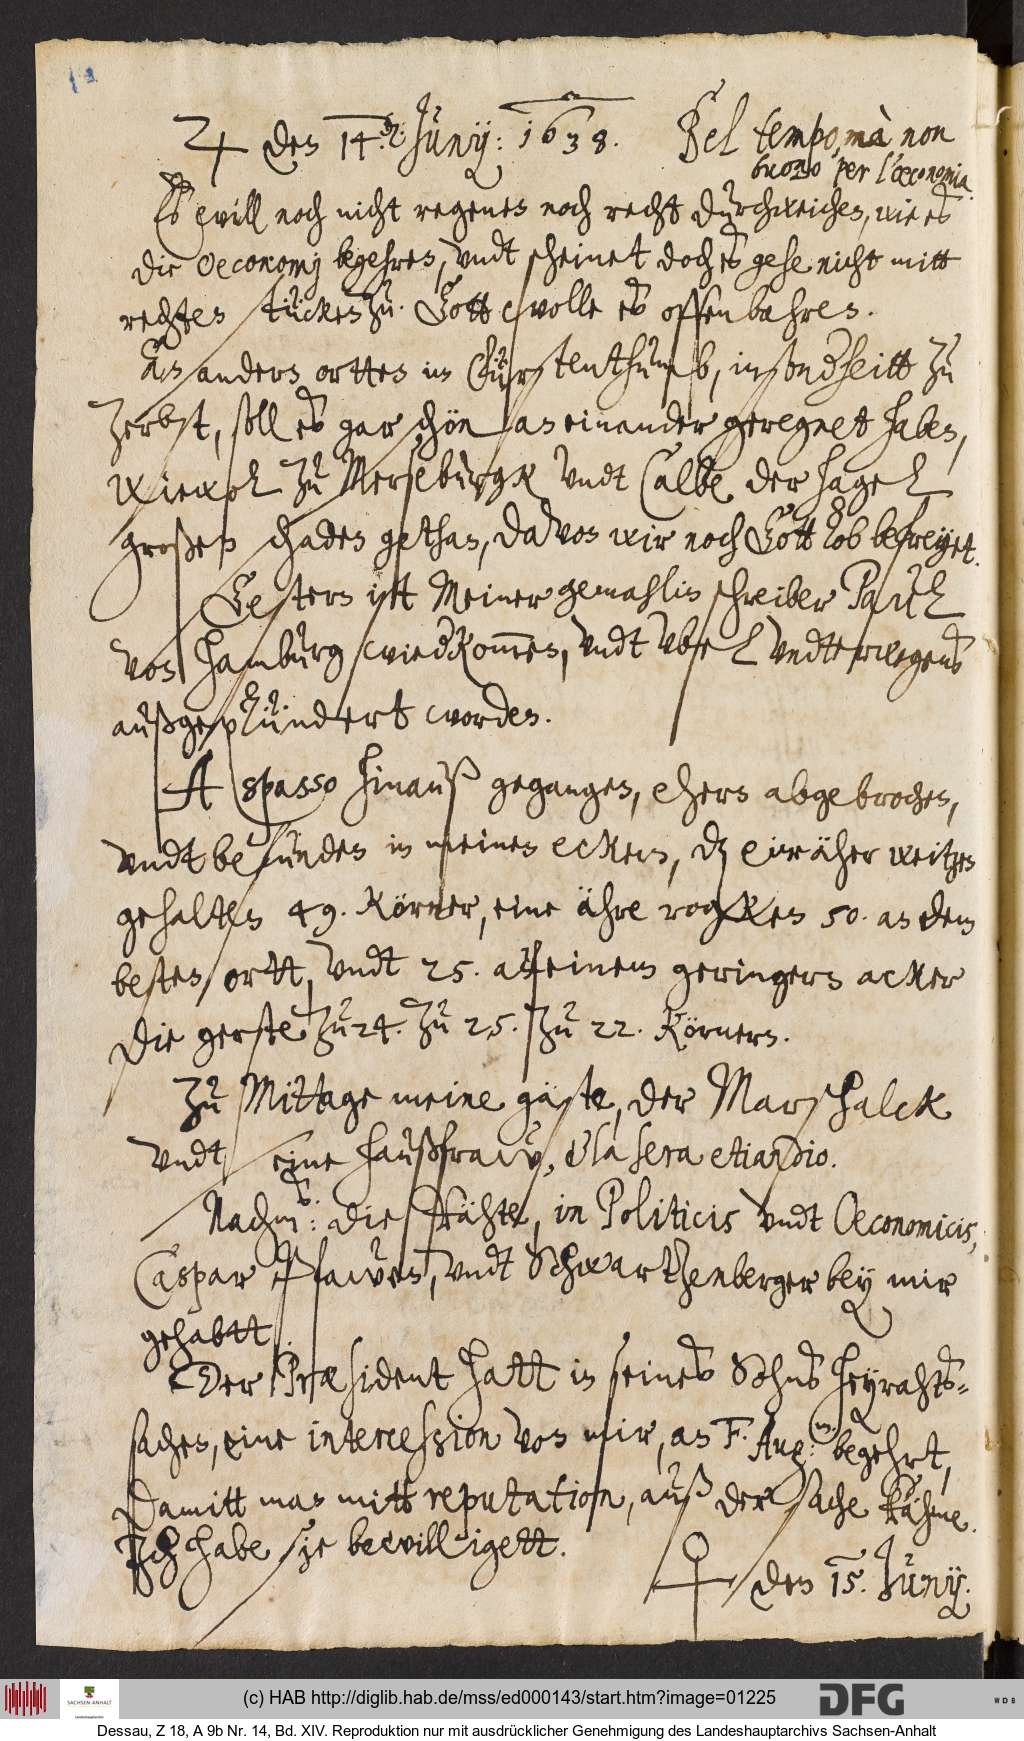 ♃ den 14.den: Junÿ: 1638. Bel tempo, mà non
buono per l'œconomia.
Es will noch nicht regenen noch recht durchweichen, wie es
die Oeconomj begehren, vndt scheinet doch es gehe nicht mitt
rechten stücken zu. Gott wolle es offenbahren.
An andern ortten im Fürstenthumb, insonderheitt zu
Zerbst, soll es gar schön an einander geregnet haben,
wiewol zu Merseburgk vndt Calbe der hagel
großen schaden gethan, davon wir noch Gott lob befreyet.
Gestern ist Meiner gemahlin schreiber Paul
von hamburg wiedkommen, vndt vbel vndterwegens
außgeplündert worden.
A spasso hinauß geganges, ehern abgebrochen,
vndt befunden in meinen eckern, dz ein äher weitzen
gehalten 49. Körner, eine ähre rogken 50. an dem
besten ortt, vndt 25. auf einem geringern acker
die gerste zu 24. zu 25. zu 22. Körnern.
Zu Mittage meine gäste, der Marschalck
vndt seine haußfraw, è la sera etiandio.
Nachm: die Rähte, in Politicis vndt Oeconomicis,
Caspar Pfawen, vndt Schwartzenberger bey mir
gehabtt.
Der Præsident hatt in seines Sohns heyrahts-
sachen, eine intercession von mir, an F. Aug: begehrt,
Damitt man mitt reputation, auß der sache kähme.
Ich habe sie bewilligett.
♀ den 15. Junÿ.
(c) HAB http://diglib.hab.de/mss/ed000143/start.htm?image=01225
SACHSEN-ANHALT
DFG
WDB
Dessau, Z 18, A 9b Nr. 14, Bd. XIV. Reproduktion nur mit ausdrücklicher Genehmigung des Landeshauptarchivs Sachsen-Anhalt